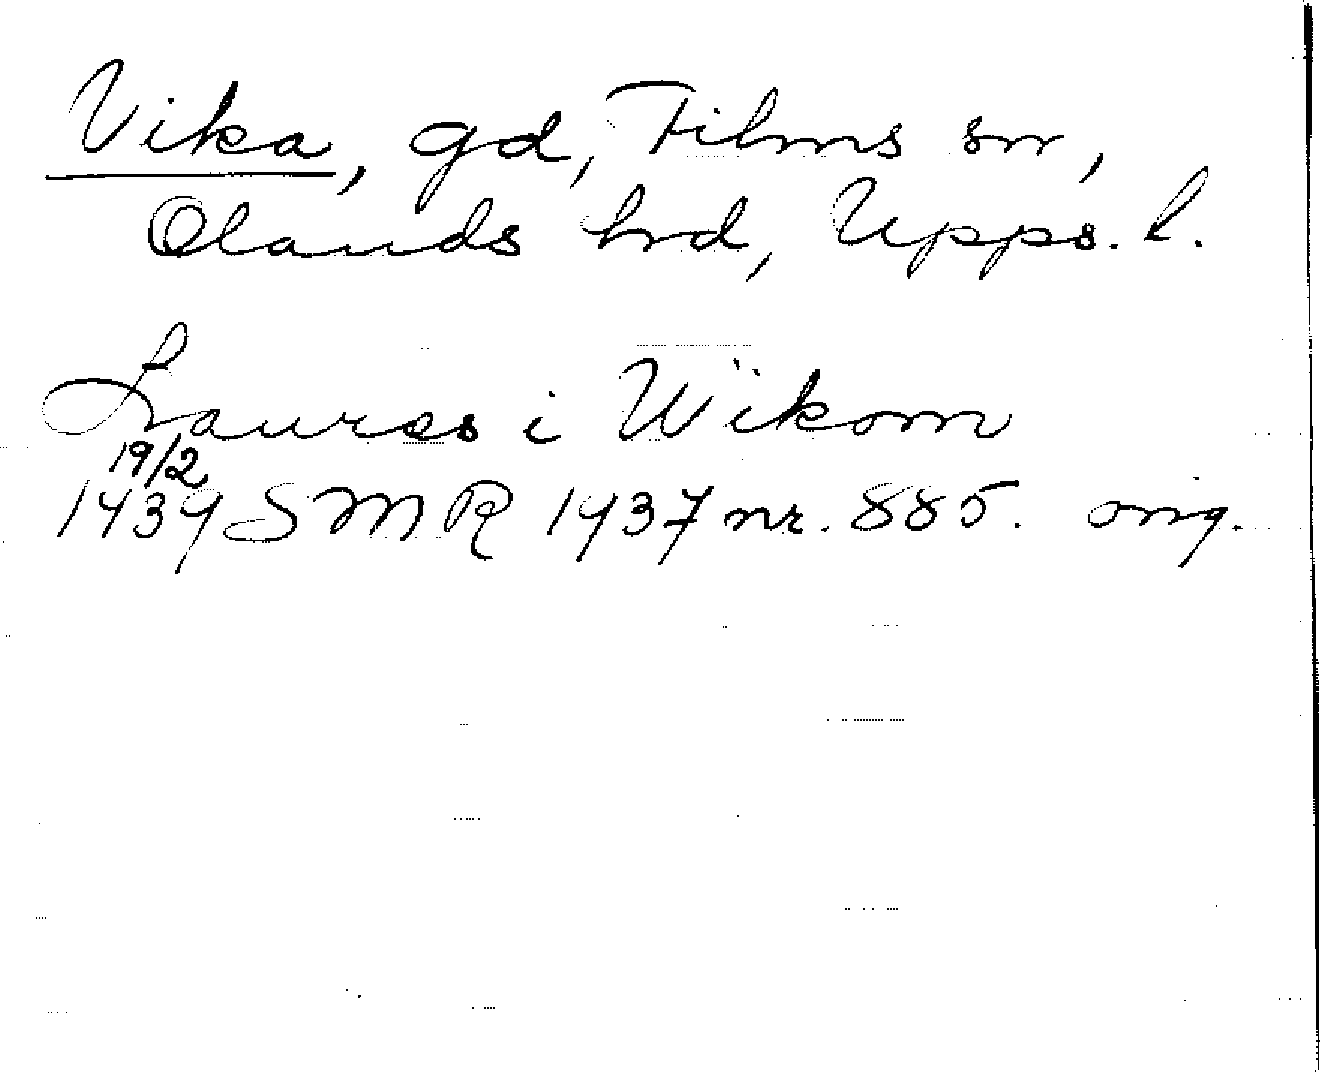 Vika, gd, Films sn,
Olands hrd, Upps. l.
Lauress i Wikom
19/2
1439 SMR 1937 nr. 885. orig.